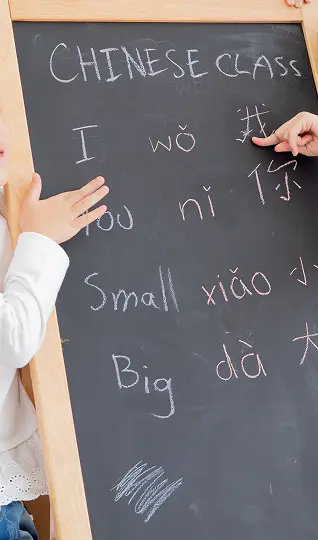 CHINESE CLASS
I wǒ 我
You nǐ 你
Small xiǎo 小
Big dà 大